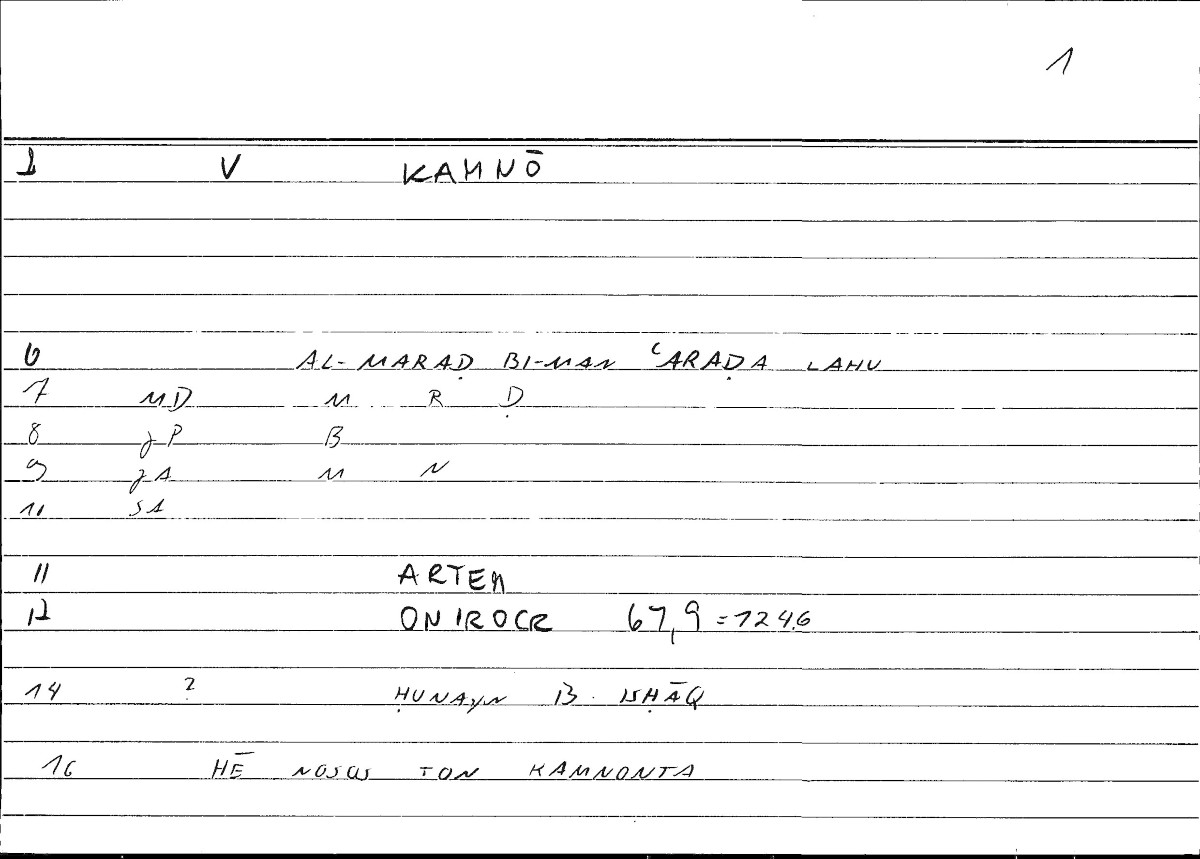 1
1 V KAMNŌ
6 AL-MARAḌ BI-MAN ʿARAḌA LAHU
7 MD M R Ḍ
8 JP B
9 JA M N
10 SA
11 ARTEM
12 ONIROCR 67,9 = 124,6
14 ? ḤUNAYN B. ISḤĀQ
16 HĒ NOSOS TON KAMNONTA